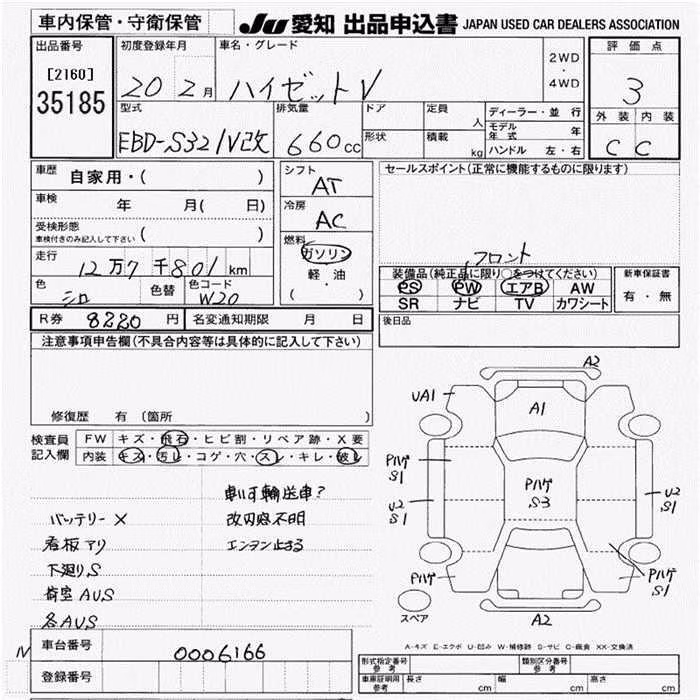 車内保管・守衛保管
JU 愛知 出品申込書 JAPAN USED CAR DEALERS ASSOCIATION
出品番号
[2160]
35185
初度登録年月
20 2月
車名・グレード
ハイゼットV
2WD
・
4WD
評価点
3
外装 内装
C C
型式
EBD-S321V改
排気量
660cc
ドア
形状
定員 人
積載 kg
ディーラー・並行
モデル年式 年
ハンドル 左・右
車歴 自家用・( )
車検 年 月( 日)
受検形態
車検付きのみ記入して下さい ( )
走行 12万7千801km
色 シロ
色替
色コード W20
シフト
AT
冷房
AC
燃料
ガソリン
軽・油
( )
セールスポイント(正常に機能するものに限ります)
フロント
装備品(純正品に限り○をつけてください)
PS PW エアB AW
SR ナビ TV カワシート
新車保証書
有・無
R券 8220円
名変通知期限 月 日
後日品
注意事項申告欄(不具合内容等は具体的に記入して下さい)
修復歴 有 (箇所 )
検査員記入欄
FW キズ・飛石・ヒビ割・リペア跡・X要
内装 キズ・汚レ・コゲ・穴・スレ・キレ・破レ
車いす輸送車?
バッテリーX 改内容不明
看板アリ
下廻りS
荷室AUS
各AUS
A2
UA1
A1
Pハゲ
S1
Pハゲ
S3
U2
S1
U2
S1
Pハゲ
Pハゲ
S1
スペア
A2
車台番号 0006166
登録番号
A-キズ E-エクボ U-凹み W-補修跡 S-サビ C-腐食 XX-交換済
型式指定番号 参考
類別区分番号 参考
車庫証明用 参考 長さ cm 幅 cm 高さ cm